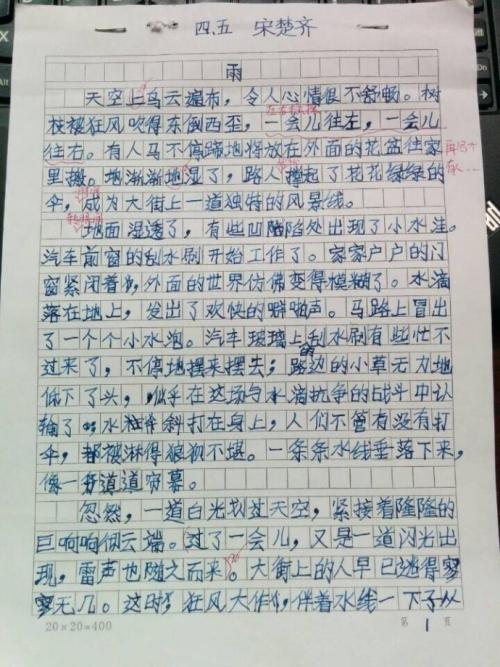 四.五 宋楚齐
雨
天空上乌云遍布，令人心情很不舒畅。树
枝被狂风吹得东倒西歪，一会儿往左，一会儿
往右。有人马不停蹄地将放在外面的花盆往家
里搬。地渐渐地湿了，路人撑起了花花绿绿的
伞，成为大街上一道独特的风景线。
地面湿透了，有些凹陷处出现了小水洼。
汽车前窗的刮水刷开始工作了。家家户户的门
窗紧闭着，外面的世界仿佛变得模糊了。水滴
落在地上，发出了欢快的噼啪声。马路上冒出
了一个个小水泡。汽车玻璃上刮水刷有些忙不
过来了，不停地摆来摆去；路边的小草无力地
低下了头，似乎在这场与水滴抗争的战斗中认
输了。水斜打在身上，人们不管有没有打
伞，都被淋得狼狈不堪。一条条水线垂落下来，
像一道道帘幕。
忽然，一道白光划过天空，紧接着隆隆的
巨响响似云端。过了一会儿，又是一道闪光出
现，雷声也随之而来。大街上的人早已逃得寥
寥无几。这时，狂风大作，伴着水线一下子从
20×20=400 第 1 页